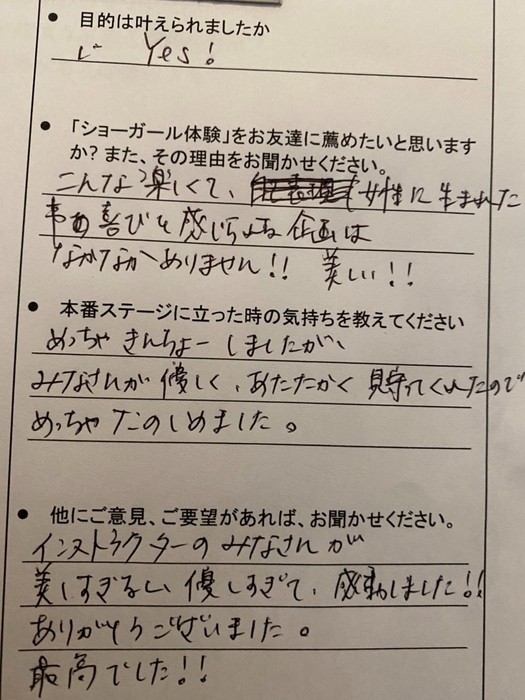 ● 目的は叶えられましたか
Yes!
● 「ショーガール体験」をお友達に薦めたいと思います
か?また、その理由をお聞かせください。
こんな楽しくて、女性に生まれた
喜びを感じられる企画は
なかなかありません!! 美しい!!
● 本番ステージに立った時の気持ちを教えてください
めっちゃきんちょーしましたが、
みなさんが優しく、あたたかく見守ってくれたので
めっちゃたのしめました。
● 他にご意見、ご要望があれば、お聞かせください。
インストラクターのみなさんが
美しすぎるし優しすぎて、感動しました!!
ありがとうございました。
最高でした!!